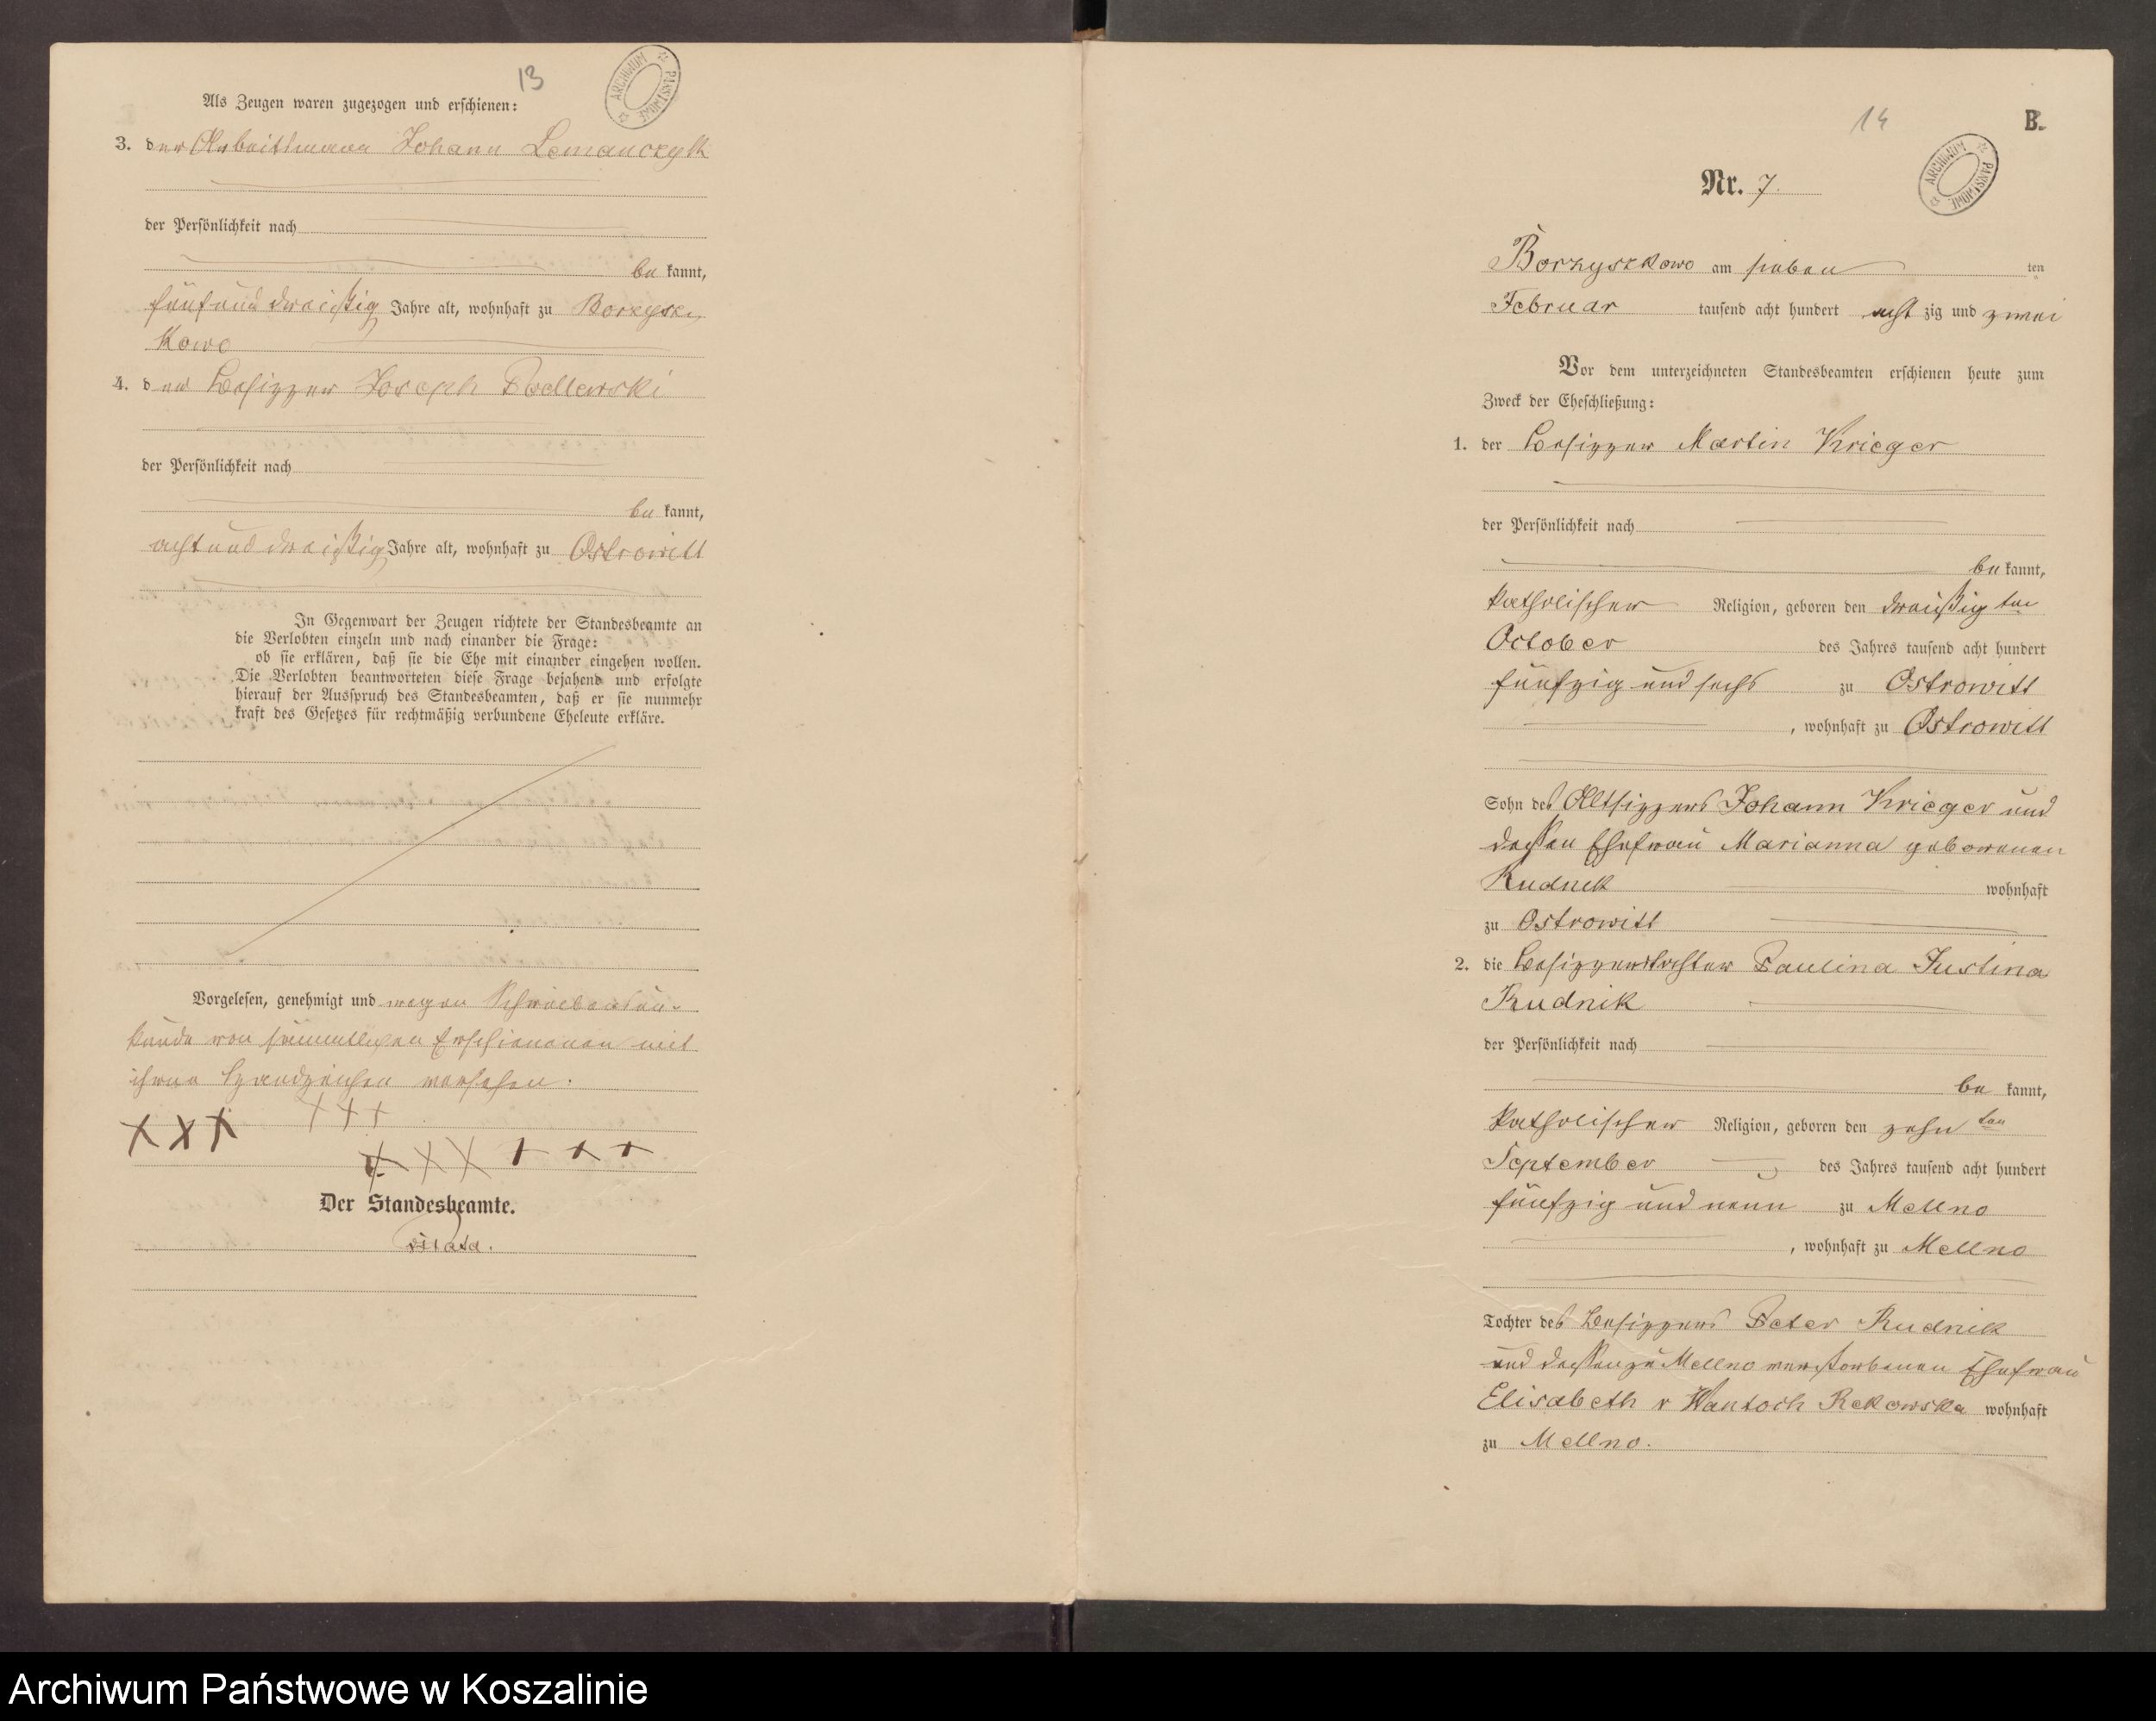 13
ARCHIWUM PAŃSTWOWE
Als Zeugen waren zugezogen und erschienen:
3. der Arbeitsmann Johann Lemanczyk
der Persönlichkeit nach
be kannt,
fünfunddreißig Jahre alt, wohnhaft zu Borzysz
kowo
4. der Besitzer Joseph
der Persönlichkeit nach
be kannt,
achtunddreißig Jahre alt, wohnhaft zu Ostrowitt
In Gegenwart der Zeugen richtete der Standesbeamte an
die Verlobten einzeln und nach einander die Frage:
ob sie erklären, daß sie die Ehe mit einander eingehen wollen.
Die Verlobten beantworteten diese Frage bejahend und erfolgte
hierauf der Ausspruch des Standesbeamten, daß er sie nunmehr
kraft des Gesetzes für rechtmäßig verbundene Eheleute erkläre.
Vorgelesen, genehmigt und wegen Schreibensun-
kunde von sämmtlichen Erschienenen mit
ihren Handzeichen versehen.
+++
XXX
XXX +++
Der Standesbeamte.
14
B.
ARCHIWUM PAŃSTWOWE
Nr. 7.
Borzyszkowo am sieben ten
Februar tausend acht hundert acht zig und zwei
Vor dem unterzeichneten Standesbeamten erschienen heute zum
Zweck der Eheschließung:
1. der Besitzer Martin Krieger
der Persönlichkeit nach
be kannt,
katholischer Religion, geboren den dreißig ten
October des Jahres tausend acht hundert
fünfzig und sechs zu Ostrowitt
, wohnhaft zu Ostrowitt
Sohn des Altsitzers Johann Krieger und
dessen Ehefrau Marianna geborenen
Rudnik wohnhaft
zu Ostrowitt
2. die Besitzerstochter Paulina Justina
Rudnik
der Persönlichkeit nach
be kannt,
katholischer Religion, geboren den zehn ten
September des Jahres tausend acht hundert
fünfzig und neun zu Mellno
, wohnhaft zu Mellno
Tochter des Besitzers Peter Rudnik
und dessen zu Mellno verstorbenen Ehefrau
Elisabeth v Wantoch Rekowska wohnhaft
zu Mellno.
Archiwum Państwowe w Koszalinie